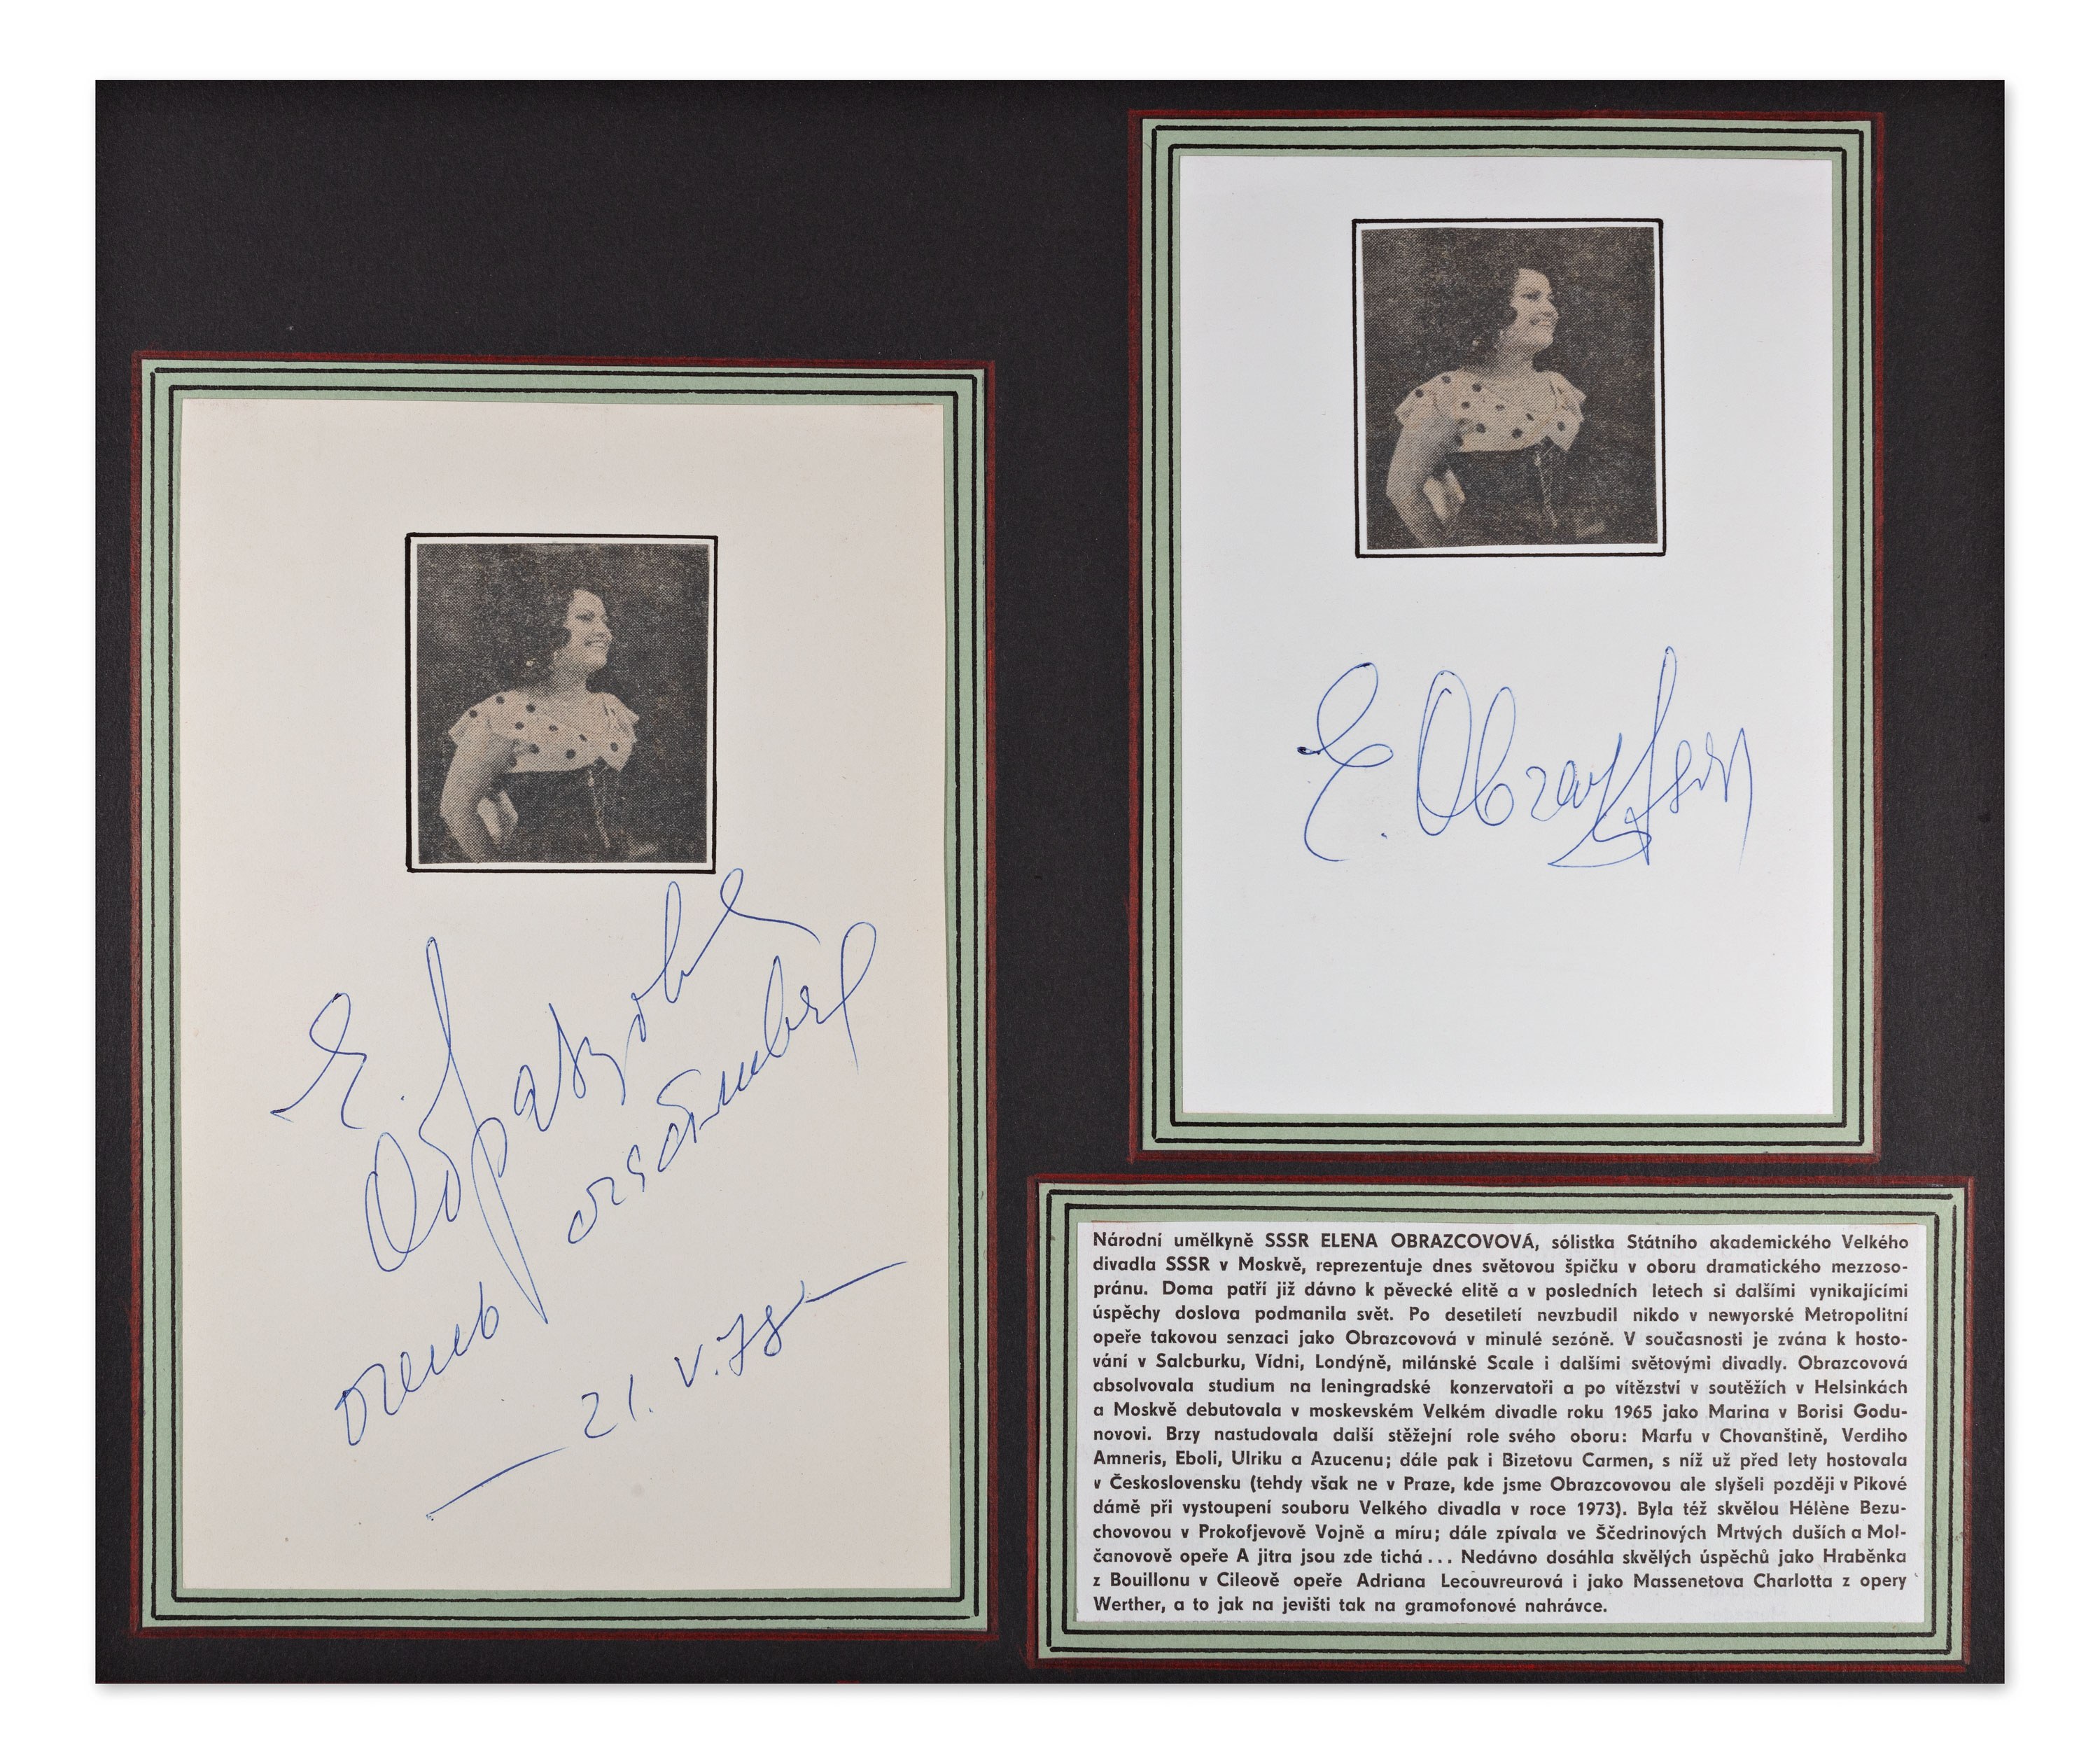 Е. Образцова
очень счастливая
21. V. 78
E. Obraztsova
Národní umělkyně SSSR ELENA OBRAZCOVOVÁ, sólistka Státního akademického Velkého
divadla SSSR v Moskvě, reprezentuje dnes světovou špičku v oboru dramatického mezzoso-
pránu. Doma patří již dávno k pěvecké elitě a v posledních letech si dalšími vynikajícími
úspěchy doslova podmanila svět. Po desetiletí nevzbudil nikdo v newyorské Metropolitní
opeře takovou senzaci jako Obrazcovová v minulé sezóně. V současnosti je zvána k hosto-
vání v Salcburku, Vídni, Londýně, milánské Scale i dalšími světovými divadly. Obrazcovová
absolvovala studium na leningradské konzervatoři a po vítězství v soutěžích v Helsinkách
a Moskvě debutovala v moskevském Velkém divadle roku 1965 jako Marina v Borisi Godu-
novovi. Brzy nastudovala další stěžejní role svého oboru: Marfu v Chovanštině, Verdiho
Amneris, Eboli, Ulriku a Azucenu; dále pak i Bizetovu Carmen, s níž už před lety hostovala
v Československu (tehdy však ne v Praze, kde jsme Obrazcovovou ale slyšeli později v Pikové
dámě při vystoupení souboru Velkého divadla v roce 1973). Byla též skvělou Hélène Bezu-
chovovou v Prokofjevově Vojně a míru; dále zpívala ve Ščedrinových Mrtvých duších a Mol-
čanovově opeře A jitra jsou zde tichá... Nedávno dosáhla skvělých úspěchů jako Hraběnka
z Bouillonu v Cileově opeře Adriana Lecouvreurová i jako Massenetova Charlotta z opery
Werther, a to jak na jevišti tak na gramofonové nahrávce.